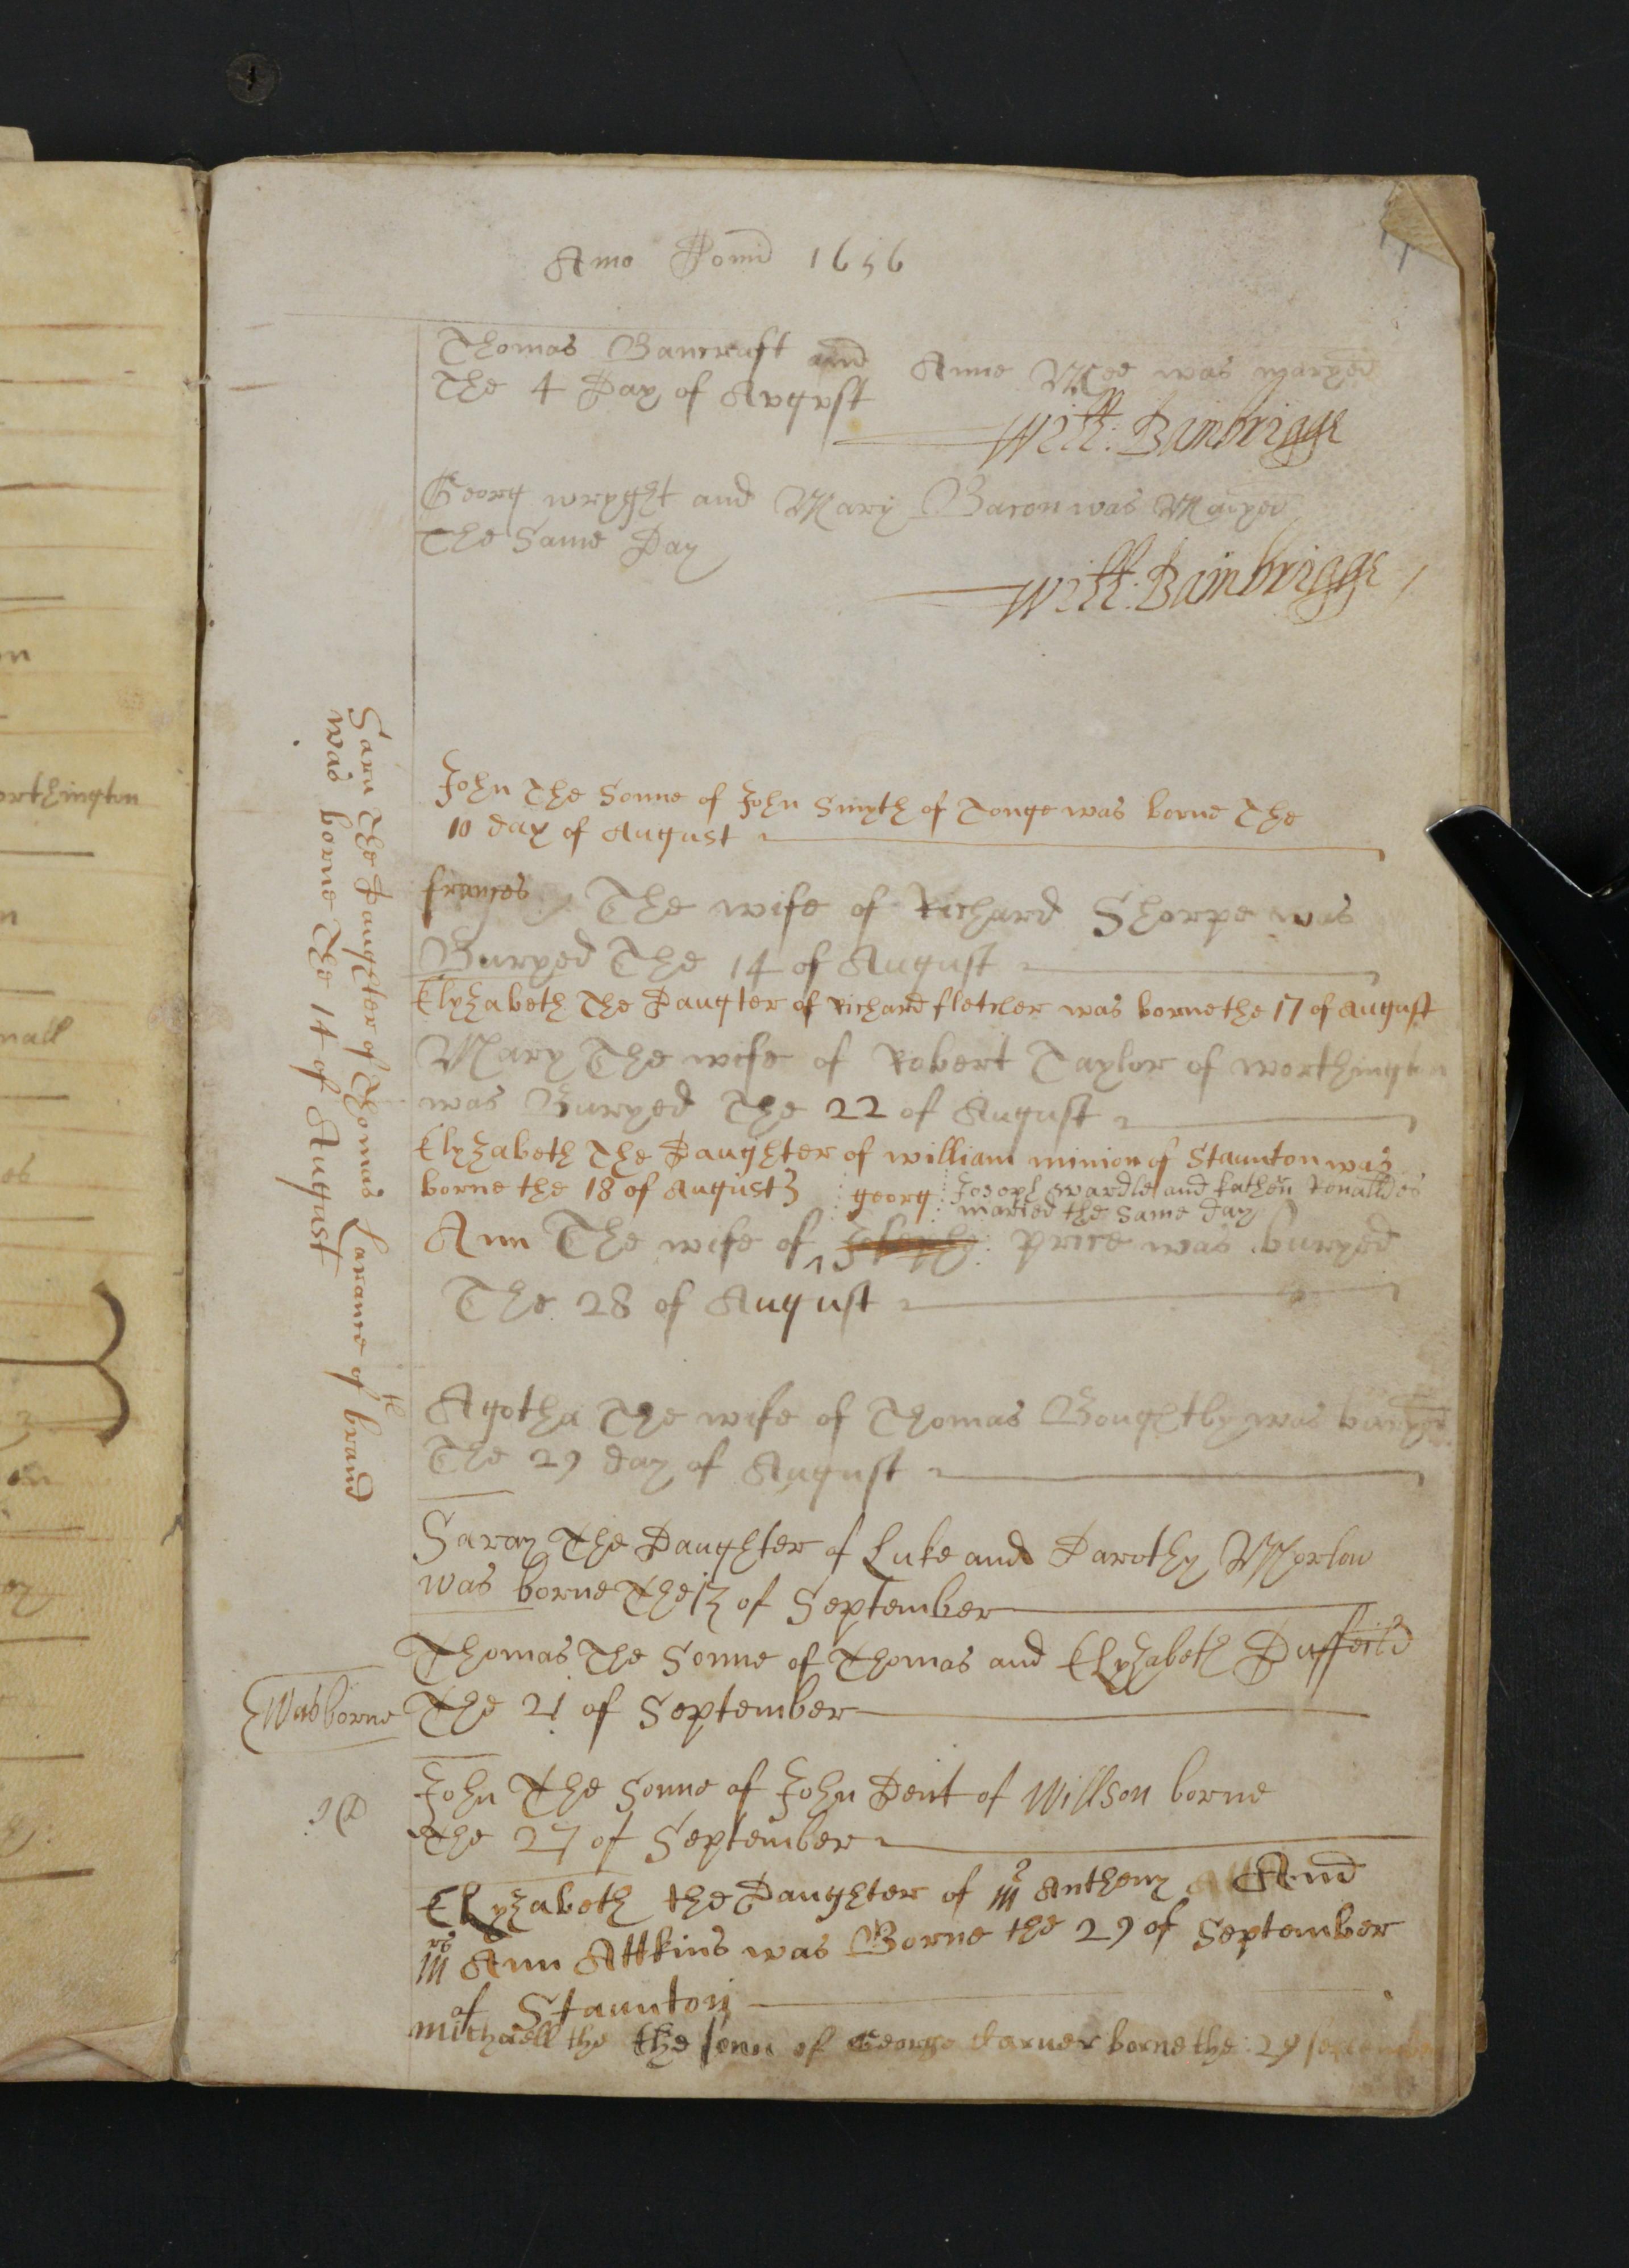 Anno Domi 1656
Thomas Bancraft and Anne Mee was maryed
The 4 Day of Avgvst
Will: Bainbrigge
Georg wryght and Mary Bacon was Maryed
The Same Day
Will: Bainbrigge
John The Sonne of John Smyth of Tonge was borne The
10 day of August
frances The wife of Richard Shorpe was
Buryed The 14 of August
Elyzabeth The Daugter of Richard fletcher was borne the 17 of August
Mary The wife of Robert Taylor of worthington
was Buryed The 22 of August
Elyzabeth The Daughter of william minion of Staunton was
borne the 18 of August
Joseph wardle and Kathern Renalldes
maried the same day
Ann The wife of georg price was buryed
The 28 of August
Agotha The wife of Thomas Boughtby was buryed
The 29 day of August
Saray The Daughter of Luke and Darothy
was borne The of September
Thomas The Sonne of Thomas and Elyzabeth Duffeild
Was borne The 21 of September
John The Sonne of John Dent of Willson borne
the 27 of September
Elyzabeth the Daughter of mr Anthony And
mrs Ann Attkins was Borne the 29 of September
of Staunton
Mithaell the the sonn of George farner borne the : 29 september
Sara The Daughter of Thomas Larance of the brand
was borne The 14 of August